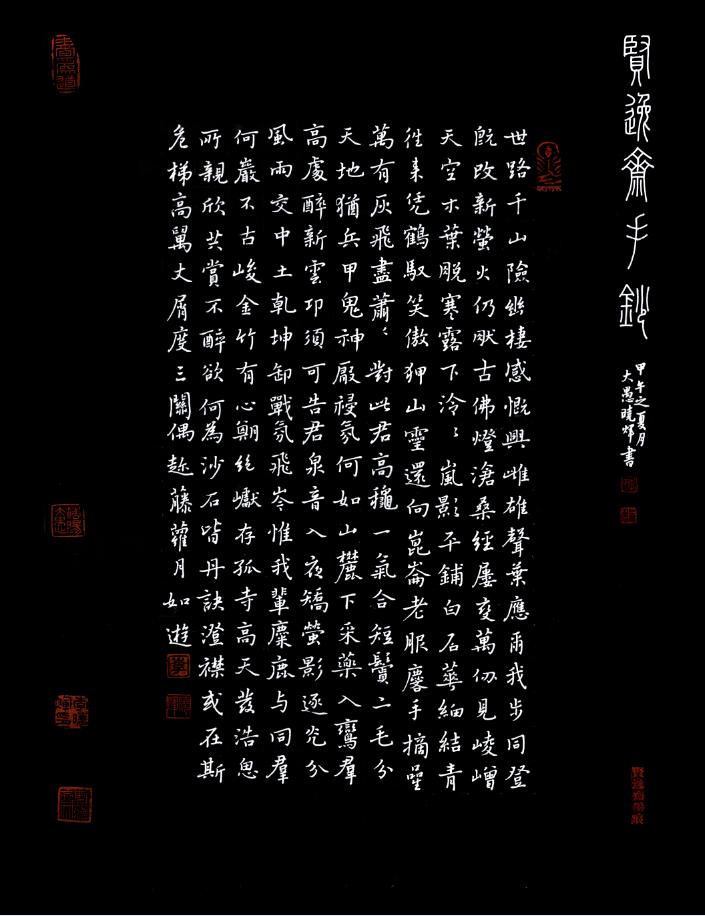 賢逸齋手鈔
甲午之夏月
大愚曉輝書
世路千山險幽棲感慨興雌雄聲葉應爾我步同登
既改新螢火仍猒古佛燈滄桑經屢變萬仞見崚嶒
天空木葉脫寒露下泠〻嵐影平鋪白石華細結青
往來凭鶴馭笑傲狎山靈還向崑崙老服麐手摘星
萬有灰飛盡蕭〻對此君高穐一氣合短鬢二毛分
天地猶兵甲鬼神厭祲氛何如山麓下采藥入鸞羣
高處醉新雲卭須可告君泉音入夜矯螢影逐光分
風雨交中土乾坤卸戰氛飛岑惟我輩麋鹿与同羣
何巖不古峻金竹有心期絕巘存孤寺高天發浩思
所親欣共賞不醉欲何為沙石皆丹訣澄襟或在斯
危梯高萬丈屑度三關偶趁藤蘿月如遊
賢逸齋墨痕